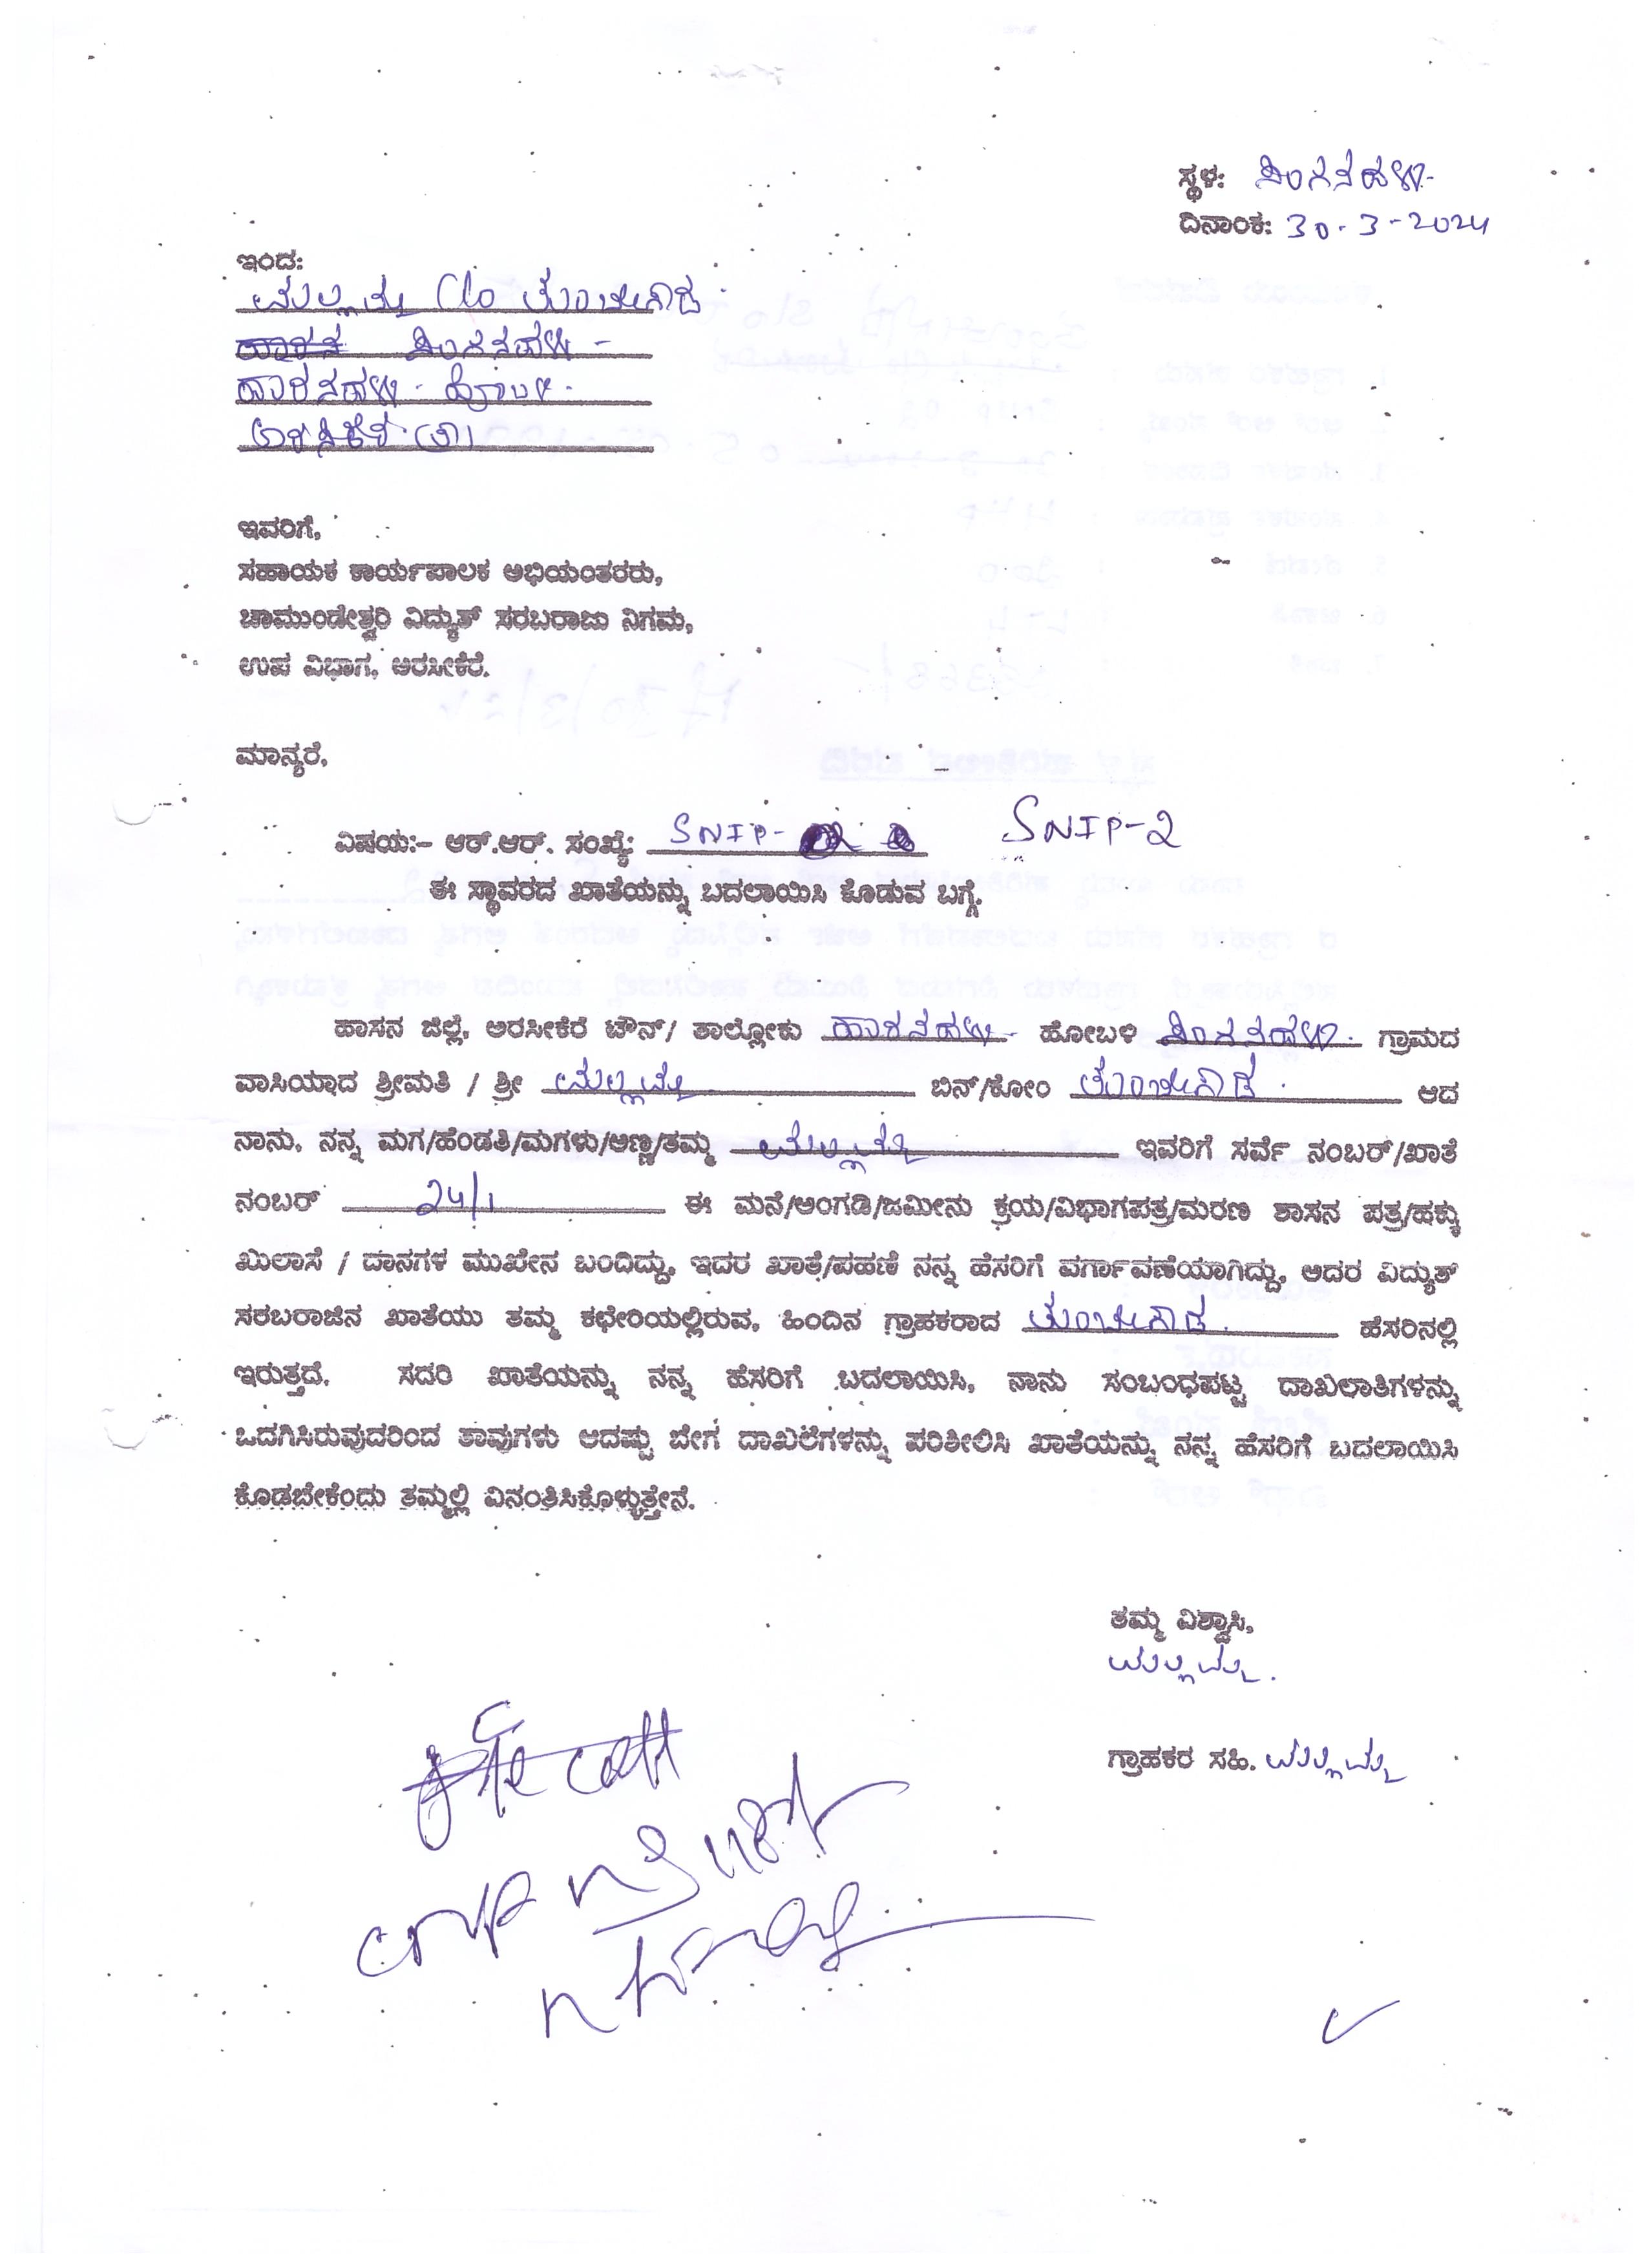 ಸ್ಥಳ: ಶಿಂಗನಹಳ್ಳಿ-
ದಿನಾಂಕ: 30-3-2024
ಇಂದ:
ಮಲ್ಲಮ್ಮ C/o
ಶಿಂಗನಹಳ್ಳಿ -
ಹಾರನಹಳ್ಳಿ - ಹೋಬಳಿ.
ಅರಸೀಕೆರೆ (ತಾ)
ಇವರಿಗೆ,
ಸಹಾಯಕ ಕಾರ್ಯಪಾಲಕ ಅಭಿಯಂತರರು,
ಚಾಮುಂಡೇಶ್ವರಿ ವಿದ್ಯುತ್ ಸರಬರಾಜು ನಿಗಮ,
ಉಪ ವಿಭಾಗ, ಅರಸೀಕೆರೆ.
ಮಾನ್ಯರೆ,
ವಿಷಯ:- ಆರ್.ಆರ್. ಸಂಖ್ಯೆ: SNIP- SNIP-2
ಈ ಸ್ಥಾವರದ ಖಾತೆಯನ್ನು ಬದಲಾಯಿಸಿ ಕೊಡುವ ಬಗ್ಗೆ.
ಹಾಸನ ಜಿಲ್ಲೆ, ಅರಸೀಕೆರೆ ಟೌನ್/ ತಾಲ್ಲೋಕು ಹಾರನಹಳ್ಳಿ- ಹೋಬಳಿ ಶಿಂಗನಹಳ್ಳಿ. ಗ್ರಾಮದ
ವಾಸಿಯಾದ ಶ್ರೀಮತಿ / ಶ್ರೀ ಮಲ್ಲಮ್ಮ ಬಿನ್/ಕೋಂ ಆದ
ನಾನು, ನನ್ನ ಮಗ/ಹೆಂಡತಿ/ಮಗಳು/ಅಣ್ಣ/ತಮ್ಮ ಮಲ್ಲಮ್ಮ ಇವರಿಗೆ ಸರ್ವೆ ನಂಬರ್/ಖಾತೆ
ನಂಬರ್ 24/1 ಈ ಮನೆ/ಅಂಗಡಿ/ಜಮೀನು ಕ್ರಯ/ವಿಭಾಗಪತ್ರ/ಮರಣ ಶಾಸನ ಪತ್ರ/ಹಕ್ಕು
ಖುಲಾಸೆ / ದಾನಗಳ ಮುಖೇನ ಬಂದಿದ್ದು, ಇದರ ಖಾತೆ/ಪಹಣಿ ನನ್ನ ಹೆಸರಿಗೆ ವರ್ಗಾವಣೆಯಾಗಿದ್ದು, ಅದರ ವಿದ್ಯುತ್
ಸರಬರಾಜಿನ ಖಾತೆಯು ತಮ್ಮ ಕಛೇರಿಯಲ್ಲಿರುವ, ಹಿಂದಿನ ಗ್ರಾಹಕರಾದ ಹೆಸರಿನಲ್ಲಿ
ಇರುತ್ತದೆ. ಸದರಿ ಖಾತೆಯನ್ನು ನನ್ನ ಹೆಸರಿಗೆ ಬದಲಾಯಿಸಿ, ನಾನು ಸಂಬಂಧಪಟ್ಟ ದಾಖಲಾತಿಗಳನ್ನು
ಒದಗಿಸಿರುವುದರಿಂದ ತಾವುಗಳು ಆದಷ್ಟು ಬೇಗ ದಾಖಲೆಗಳನ್ನು ಪರಿಶೀಲಿಸಿ ಖಾತೆಯನ್ನು ನನ್ನ ಹೆಸರಿಗೆ ಬದಲಾಯಿಸಿ
ಕೊಡಬೇಕೆಂದು ತಮ್ಮಲ್ಲಿ ವಿನಂತಿಸಿಕೊಳ್ಳುತ್ತೇನೆ.
ತಮ್ಮ ವಿಶ್ವಾಸಿ,
ಮಲ್ಲಮ್ಮ.
ಗ್ರಾಹಕರ ಸಹಿ. ಮಲ್ಲಮ್ಮ